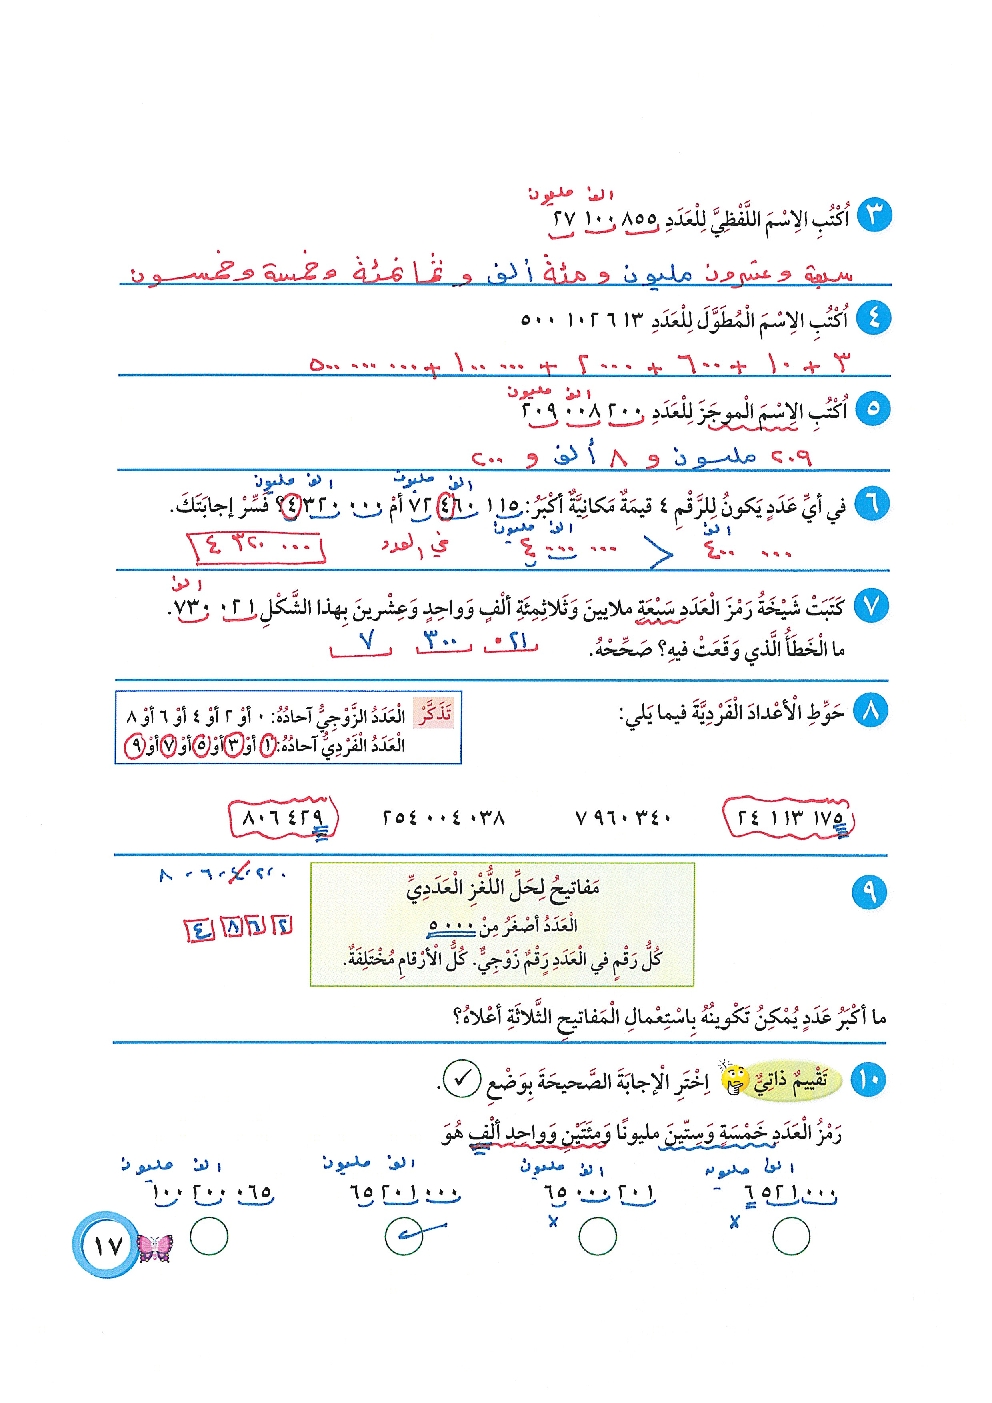 الف مليون
٣ أُكْتُبِ الِاسْمَ اللَّفْظِيَّ لِلْعَدَدِ ٨٥٥ ١٠٠ ٢٧
سبعة وعشرون مليون و مئة ألف و ثمانمئة وخمسة وخمسون
٤ أُكْتُبِ الِاسْمَ الْمُطَوَّلَ لِلْعَدَدِ ٦١٣ ١٠٢ ٥٠٠
٣ + ١٠ + ٦٠٠ + ٢٠٠٠ + ١٠٠ ٠٠٠ + ٥٠٠ ٠٠٠ ٠٠٠
الف مليون
٥ أُكْتُبِ الِاسْمَ الْموجَزَ لِلْعَدَدِ ٢٠٠ ٠٠٨ ٢٠٩
٢٠٩ مليون و ٨ ألف و ٢٠٠
الف مليون الف مليون
٦ في أيِّ عَدَدٍ يَكونُ لِلرَّقْمِ ٤ قيمَةٌ مَكانِيَّةٌ أكْبَرُ: ١١٥ ٤٦٠ ٧٢ أمْ ٠٠٠ ٣٢٠ ٤؟ فَسِّرْ إجابَتَكَ.
الف الف مليون
٤٠٠ ٠٠٠ < ٤ ٠٠٠ ٠٠٠ في العدد ٤ ٣٢٠ ٠٠٠
الف
٧ كَتَبَتْ شَيْخَةُ رَمْزَ الْعَدَدِ سَبْعَةِ ملايينَ وَثَلاثِمِئَةِ ألْفٍ وَواحِدٍ وَعِشْرينَ بِهذا الشَّكْلِ ٠٢١ ٧٣٠.
ما الْخَطَأُ الَّذي وَقَعَتْ فيهِ؟ صَحِّحْهُ. ٠٢١ ٣٠٠ ٧
٨ حَوِّطِ الْأعْدادَ الْفَرْدِيَّةَ فيما يَلي:
تَذَكَّرْ الْعَدَدُ الزَّوْجِيُّ آحادُهُ: ٠ أوْ ٢ أوْ ٤ أوْ ٦ أوْ ٨
الْعَدَدُ الْفَرْدِيُّ آحادُهُ: ١ أوْ ٣ أوْ ٥ أوْ ٧ أوْ ٩
٢٤ ١١٣ ١٧٥ ٧ ٩٦٠ ٣٤٠ ٢٥٤ ٠٠٤ ٠٣٨ ٨٠٦ ٤٢٩
٩ مَفاتيحُ لِحَلِّ اللُّغْزِ الْعَدَدِيِّ
الْعَدَدُ أصْغَرُ مِنْ ٥٠٠٠
كُلُّ رَقْمٍ في الْعَدَدِ رَقْمٌ زَوْجِيٌّ. كُلُّ الْأرْقامِ مُخْتَلِفَةٌ.
٠، ٢، ٤، ٦، ٨
٤ ٨ ٦ ٢
ما أكْبَرُ عَدَدٍ يُمْكِنُ تَكْوينُهُ بِاسْتِعْمالِ الْمَفاتيحِ الثَّلاثَةِ أعْلاهُ؟
١٠ تَقْييمٌ ذاتِيٌّ اِخْتَرِ الْإجابَةَ الصَّحيحَةَ بِوَضْعِ ✓.
رَمْزُ الْعَدَدِ خَمْسَةٍ وَسِتّينَ مليونًا وَمِئَتَيْنِ وَواحِدِ ألْفٍ هُوَ
الف مليون الف مليون الف مليون الف مليون
٦ ٥٢١ ٠٠٠ ٦٥ ٠٠٠ ٢٠١ ٦٥ ٢٠١ ٠٠٠ ١٠٠ ٢٠٠ ٠٦٥
x x ✓
١٧